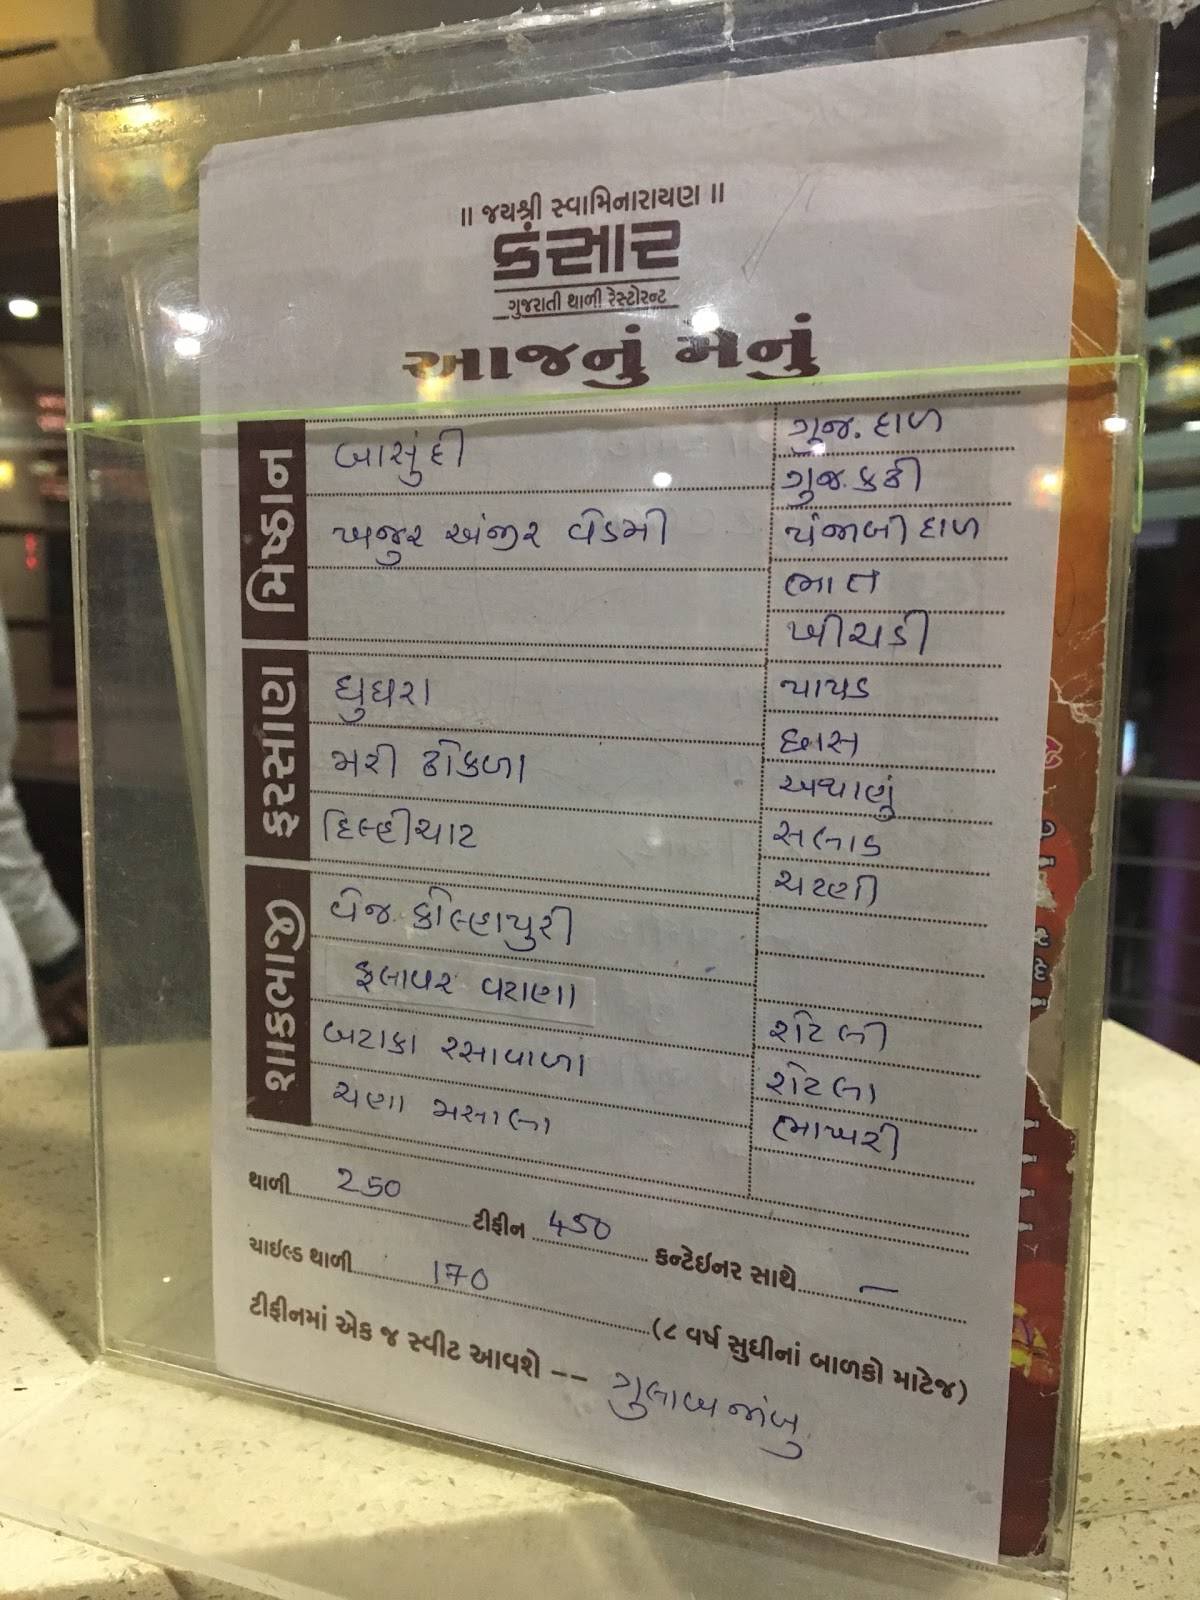 ॥ જયશ્રી સ્વામિનારાયણ ॥
કંસાર
ગુજરાતી થાળી રેસ્ટોરન્ટ
આજનું મેનું
મિષ્ઠાન
બાસુંદી
ખજુર અંજીર વેડમી
ફરસાણ
ઘુઘરા
મરી ઢોકળા
દિલ્હીચાટ
શાકભાજી
વેજ. કોલ્હાપુરી
ફલાવર વટાણા
બટાકા રસાવાળા
ચણા મસાલા
ગુજ. દાળ
ગુજ. કઢી
પંજાબી દાળ
ભાત
ખીચડી
પાપડ
છાસ
અથાણું
સલાડ
ચટણી
રોટલી
રોટલા
ભાખરી
થાળી 250 ટીફીન 450 કન્ટેઈનર સાથે —
ચાઈલ્ડ થાળી 170 (૮ વર્ષ સુધીનાં બાળકો માટેજ)
ટીફીનમાં એક જ સ્વીટ આવશે -- ગુલાબજાંબુ